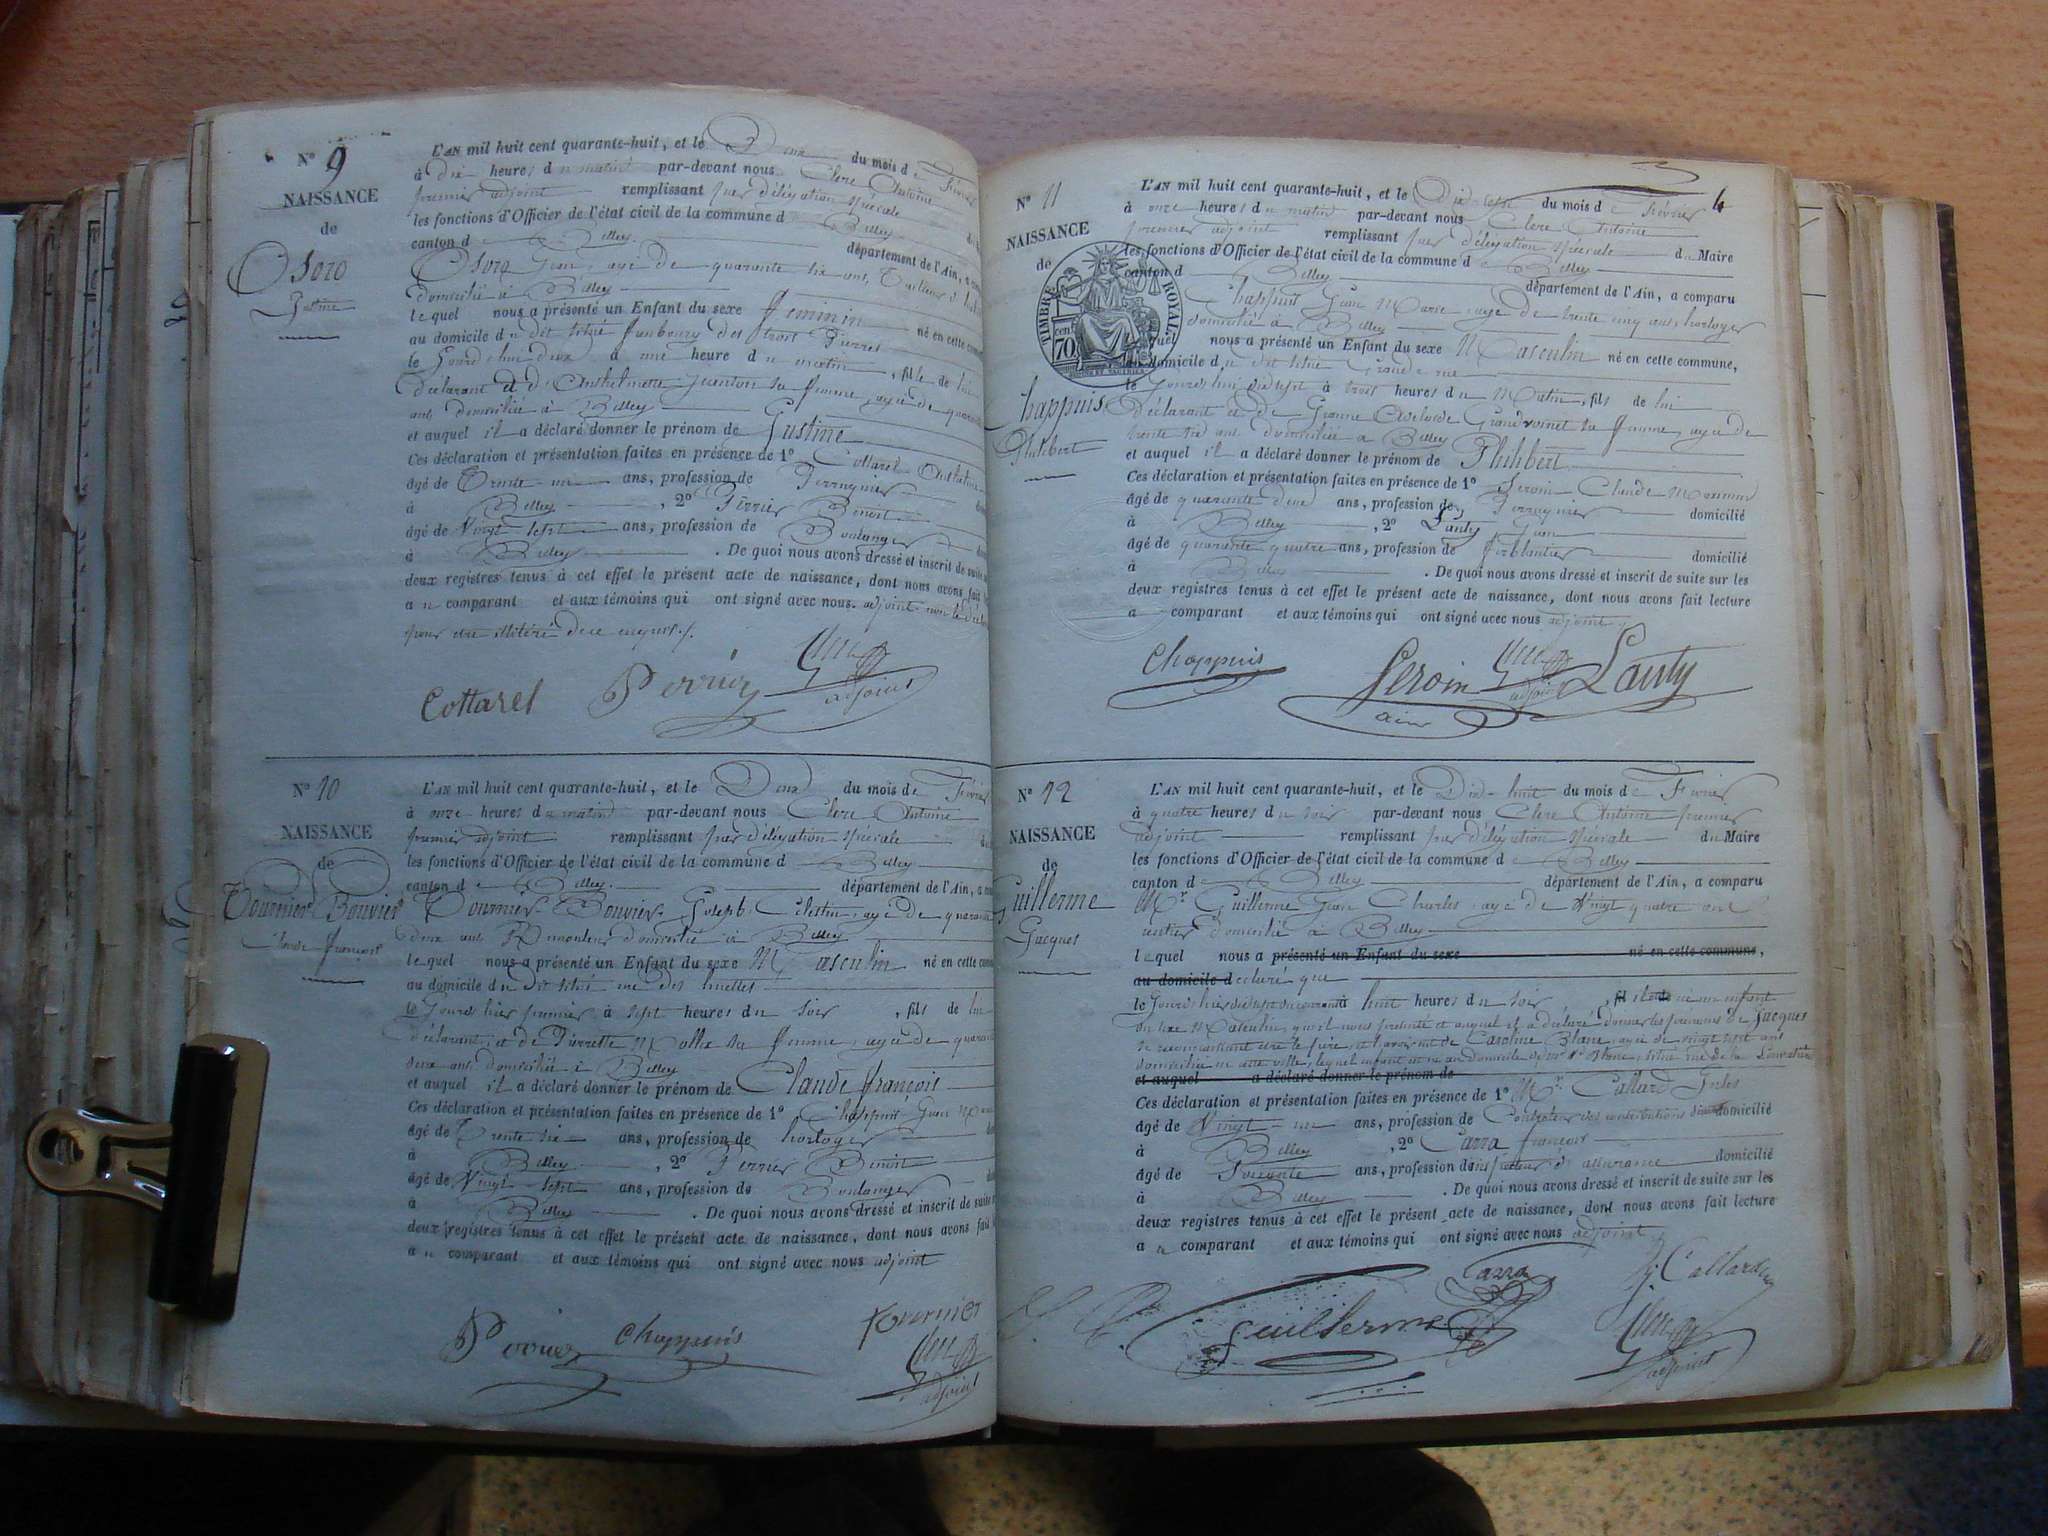 N° 9
NAISSANCE
de
Osoro
Justine
L'AN mil huit cent quarante-huit, et le Deux du mois de Février
à dix heures du matin par-devant nous Clerc Antoine
premier adjoint remplissant par délégation spéciale
les fonctions d'Officier de l'état civil de la commune de Belley
canton de Belley département de l'Ain, a
Osoro Jean, agé de quarante six ans, Tailleur
domicilié à Belley
lequel nous a présenté un Enfant du sexe féminin né en cette
au domicile du dit situé faubourg des trois Pierres
le Jourd'hui deux à une heure du matin, fille de lui
déclarant et d'Anthelmette Jeanton sa femme, agée de
ans domiciliée à Belley
et auquel il a déclaré donner le prénom de Justine
Ces déclaration et présentation faites en présence de 1° Cottarel Anthelme
âgé de Trente un ans, profession de Perruquier
à Belley, 2° Perrier Benoit
âgé de Vingt-sept ans, profession de Boulanger
à Belley. De quoi nous avons dressé et inscrit de suite
deux registres tenus à cet effet le présent acte de naissance, dont nous avons fait
au comparant et aux témoins qui ont signé avec nous adjoint non le
pour être illitéré de ce enquis./.
Cottarel Perrier Clerc
adjoint
N° 10
NAISSANCE
de
Tournier Bouvier
Claude françois
L'AN mil huit cent quarante-huit, et le Deux du mois de Février
à onze heures du matin par-devant nous Clerc Antoine
premier adjoint remplissant par délégation spéciale
les fonctions d'Officier de l'état civil de la commune de Belley
canton de Belley département de l'Ain, a
Tournier-Bouvier Joseph Célestin, agé de quarante
deux ans Rémouleur domicilié à Belley
lequel nous a présenté un Enfant du sexe Masculin né en cette
au domicile du dit situé rue des
le Jourd'hier premier à sept heures du soir, fils de lui
déclarant, et de Pierrette Mollie sa femme, agée de quarante
deux ans domiciliée à Belley
et auquel il a déclaré donner le prénom de Claude françois
Ces déclaration et présentation faites en présence de 1° Chappuis Jean
âgé de Trente six ans, profession de horloger
à Belley, 2° Perrier Benoit
âgé de Vingt-sept ans, profession de Boulanger
à Belley. De quoi nous avons dressé et inscrit de suite
deux registres tenus à cet effet le présent acte de naissance, dont nous avons fait
au comparant et aux témoins qui ont signé avec nous adjoint
Perrier Chappuis Tournier
Clerc
adjoint
4
N° 11
NAISSANCE
de
TIMBRE ROYAL
cen 70
Chappuis
Philibert
L'AN mil huit cent quarante-huit, et le Dix sept du mois de Février
à onze heures du matin par-devant nous Clerc Antoine
premier adjoint remplissant par délégation spéciale du Maire
les fonctions d'Officier de l'état civil de la commune de Belley
canton de Belley département de l'Ain, a comparu
Chappuis Jean Marie, agé de trente cinq ans, horloger
domicilié à Belley
lequel nous a présenté un Enfant du sexe Masculin né en cette commune,
au domicile du dit situé Grande rue
le Jourd'hui dix sept à trois heures du Matin, fils de lui
Déclarant et de Jeanne Grandvoinet sa femme, agée de
trente six ans domiciliée à Belley
et auquel il a déclaré donner le prénom de Philibert
Ces déclaration et présentation faites en présence de 1° Seroin Claude
âgé de quarante deux ans, profession de Perruquier domicilié
à Belley, 2° Lauty Jean
âgé de quarante quatre ans, profession de ferblantier domicilié
à Belley. De quoi nous avons dressé et inscrit de suite sur les
deux registres tenus à cet effet le présent acte de naissance, dont nous avons fait lecture
a comparant et aux témoins qui ont signé avec nous adjoint
Chappuis Seroin Clerc Lauty
ainé adjoint
N° 12
NAISSANCE
de
Guillerme
Jacques
L'AN mil huit cent quarante-huit, et le Dix-huit du mois de Février
à quatre heures du soir par-devant nous Clerc Antoine premier
adjoint remplissant par délégation spéciale du Maire
les fonctions d'Officier de l'état civil de la commune de Belley
canton de Belley département de l'Ain, a comparu
Mr. Guillerme Jean Charles, agé de Vingt quatre ans
rentier domicilié à Belley
lequel nous a présenté un Enfant du sexe né en cette commune,
au domicile déclaré que
le Jourd'hier dix sept du courant à huit heures du soir, fil est né un enfant
du sexe Masculin, qu'il nous présente et auquel il a déclaré donner les prénoms de Jacques
se reconnaissant être le père, et l'avoir eu de Caroline Blanc, agée de vingt sept ans
domiciliée en cette ville, lequel enfant est né au domicile de Blanc, situé rue de la
et auquel a déclaré donner le prénom de
Ces déclaration et présentation faites en présence de 1° Mr. Callard Jules
âgé de Vingt-un ans, profession de Contrôleur des contributions domicilié
à Belley, 2° Carra françois
âgé de Soixante ans, profession d'inspecteur d'assurance domicilié
à Belley. De quoi nous avons dressé et inscrit de suite sur les
deux registres tenus à cet effet le présent acte de naissance, dont nous avons fait lecture
au comparant et aux témoins qui ont signé avec nous adjoint
Carra J. Callard
Guillerme Clerc
adjoint